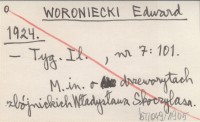 WORONIECKI Edward
1924.
- Tyg. Il., nr 7: 101.
M. in. o drzeworytach
zbójnickich Władysława Skoczylasa.